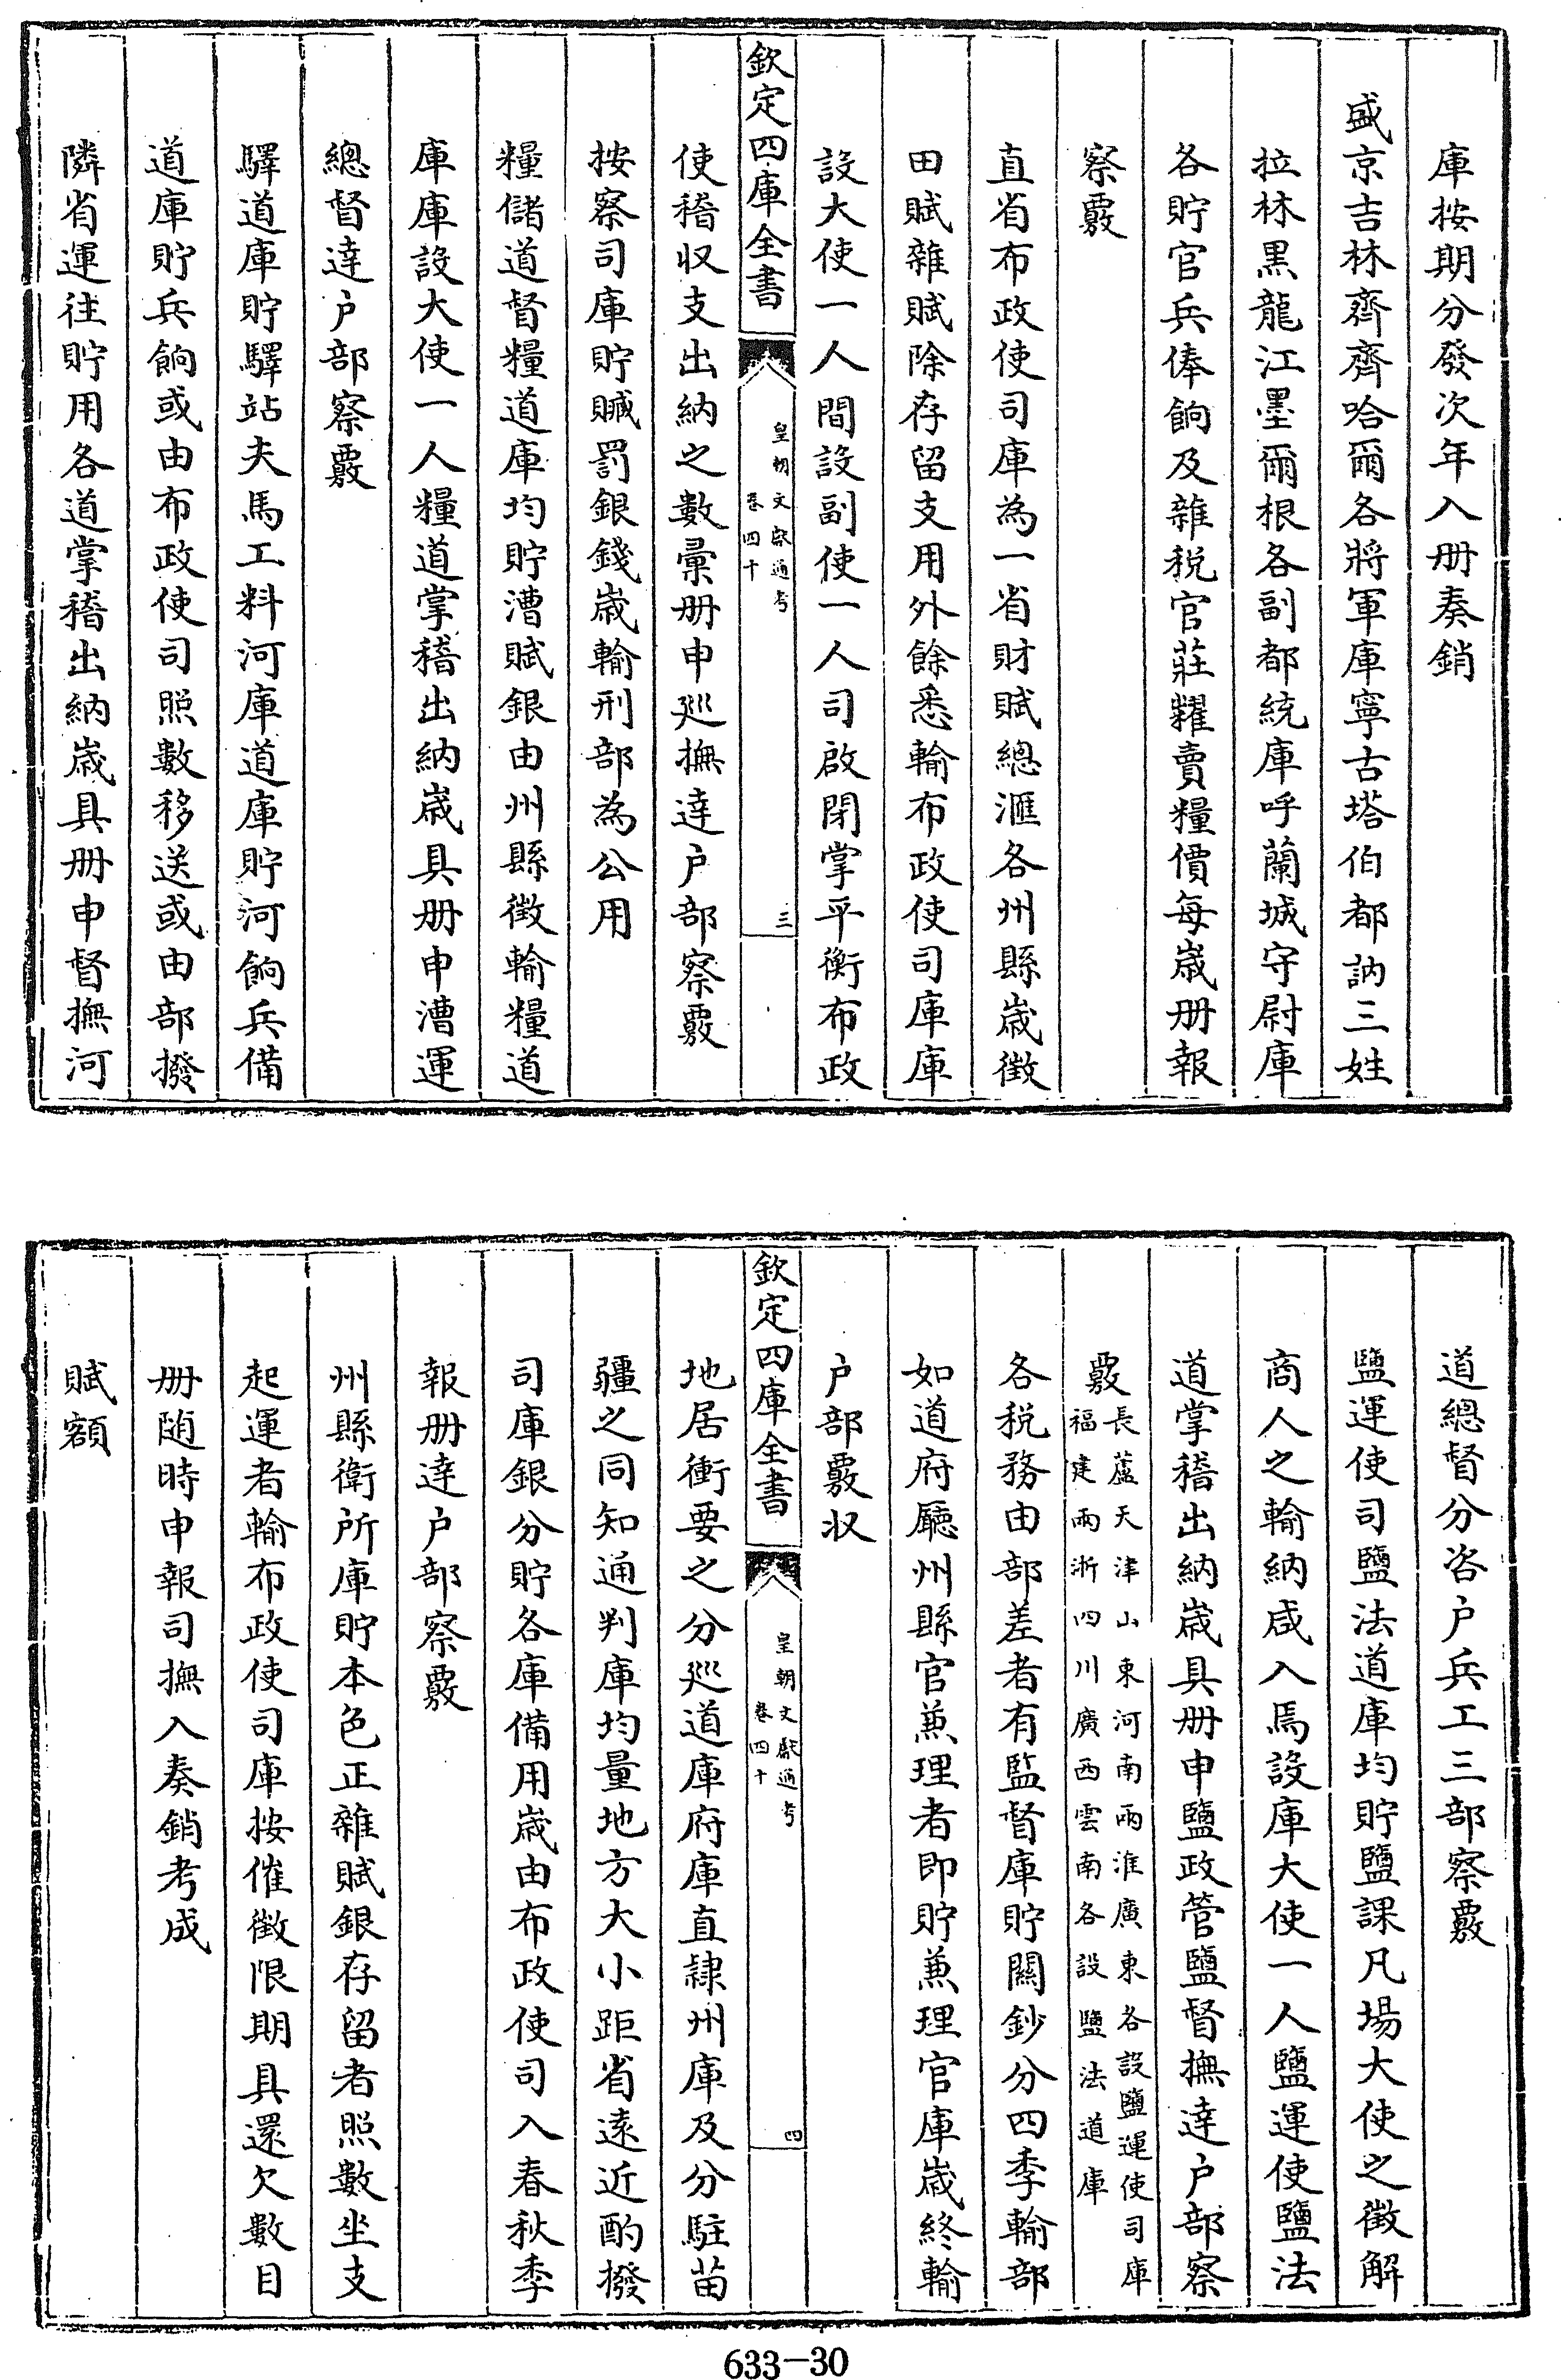 庫按期分發次年入册奏銷
盛京吉林齊齊哈爾各將軍庫寧古塔伯都訥三姓
拉林黒龍江墨爾根各副都統庫呼蘭城守尉庫
各貯官兵俸餉及雜税官莊糶賣糧價每嵗册報
察覈
直省布政使司庫為一省財賦總滙各州縣嵗徴
田賦雜賦除存留支用外餘悉輸布政使司庫庫
設大使一人間設副使一人司啟閉掌平衡布政
欽定四庫全書
皇朝文獻通考
卷四十
三
使稽収支出納之數彚册申巡撫逹户部察覈
按察司庫貯贓罰銀錢嵗輸刑部為公用
糧儲道督糧道庫均貯漕賦銀由州縣徴輸糧道
庫庫設大使一人糧道掌稽出納嵗具册申漕運
總督逹户部察覈
驛道庫貯驛站夫馬工料河庫道庫貯河餉兵備
道庫貯兵餉或由布政使司照數移送或由部撥
隣省運往貯用各道掌稽出納嵗具册申督撫河
道總督分咨户兵工三部察覈
鹽運使司鹽法道庫均貯鹽課凡場大使之徴解
商人之輸納咸入焉設庫大使一人鹽運使鹽法
道掌稽出納嵗具册申鹽政管鹽督撫逹户部察
覈長蘆天津山東河南兩淮廣東各設鹽運使司庫
福建兩浙四川廣西雲南各設鹽法道庫
各税務由部差者有監督庫貯關鈔分四季輸部
如道府廳州縣官兼理者即貯兼理官庫嵗終輸
户部覈収
欽定四庫全書
皇朝文獻通考
卷四十
四
地居衝要之分巡道庫府庫直隷州庫及分駐苗
疆之同知通判庫均量地方大小距省遠近酌撥
司庫銀分貯各庫備用嵗由布政使司入春秋季
報册逹户部察覈
州縣衛所庫貯本色正雜賦銀存留者照數坐支
起運者輸布政使司庫按催徴限期具還欠數目
册随時申報司撫入奏銷考成
賦額
633-30